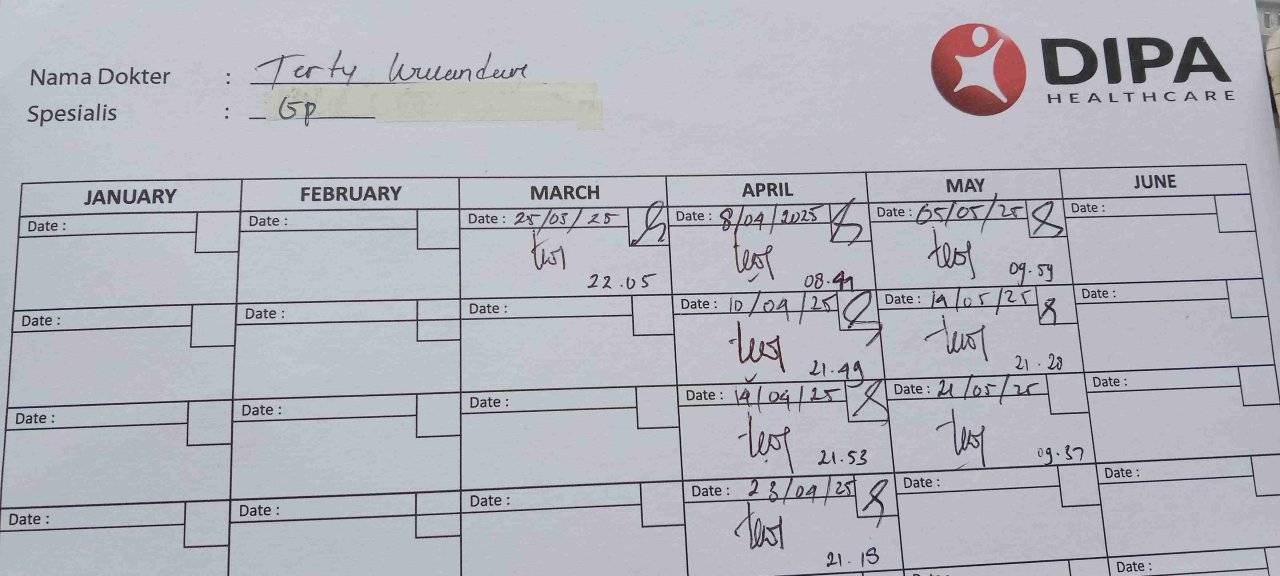 Nama Dokter : Terty
Spesialis : Gp
DIPA
HEALTHCARE
JANUARY FEBRUARY MARCH APRIL MAY JUNE
Date : Date : Date : 25/03/25 Date : 8/04/2025 Date : 05/05/25 Date :
22.05 08.41 09.59
Date : Date : Date : Date : 10/04/25 Date : 14/05/25 Date :
21.49 21.20
Date : Date : Date : Date : 14/04/25 Date : 21/05/25 Date :
21.53 09.37
Date : Date : Date : Date : 23/04/25 Date : Date :
21.18
Date : Date :